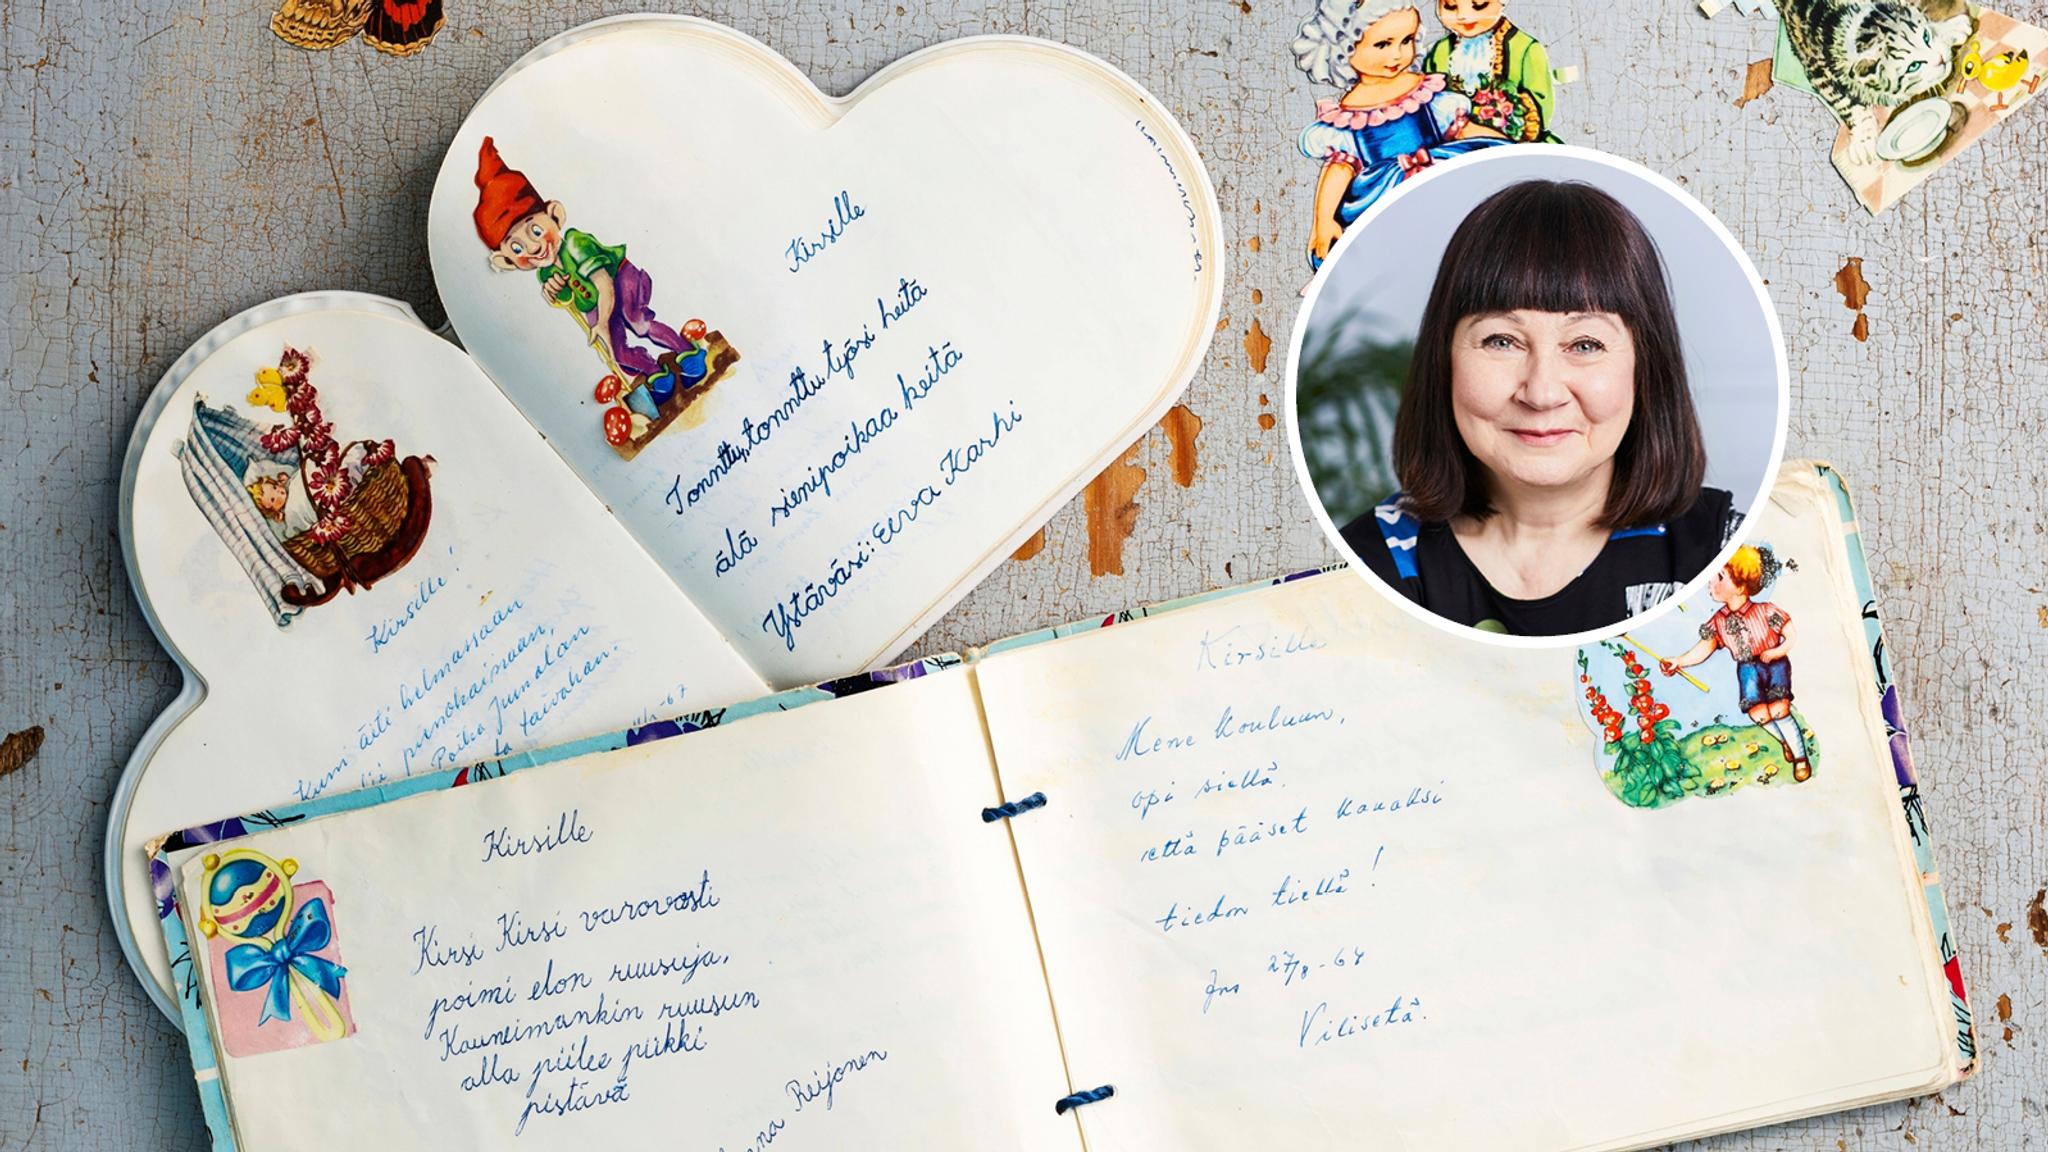 Kirsille
Tonttu, tonttu, työsi heitä
älä sienipoikaa keitä
Ystäväsi: Eeva Karhi
Kirsille!
Kum äiti helmassaan
pienokaissaan,
Poika Jumalan
taivahan.
-67
Kirsille
Kirsi Kirsi varovasti
poimi elon ruusuja,
Kauneimankin ruusun
alla piilee piikki
pistävä
Reijonen
Kirsille
Mene kouluun,
opi siellä.
että pääset kauaksi
tiedon tiellä!
Jns 27/8-64
Viliseta.